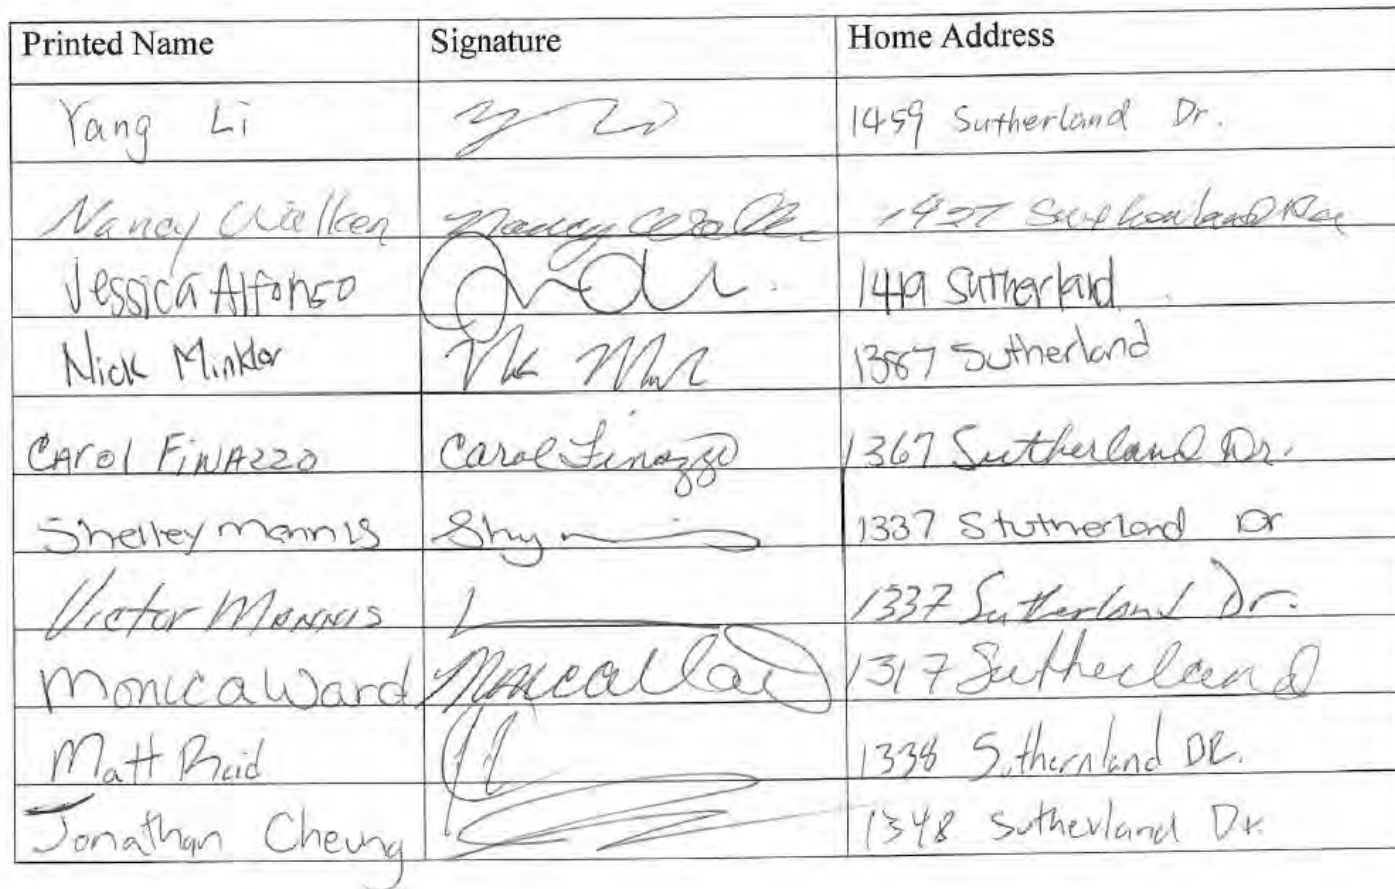 Printed Name Signature Home Address
Yang Li 1459 Sutherland Dr.
Nancy Walker Nancy 1427
Jessica Alfonso 1419 Sutherland
Nick Minkler 1387 Sutherland
CAROL FINAZZO Carol Finazzo 1367 Sutherland Dr.
Shelley Mannis 1337 Stutherland Dr
Victor Mannis 1337 Sutherland Dr.
Monica Ward Monica Wa 1317 Sutherland
Matt Reid 1338 Suthernland DR.
Jonathan Cheung 1348 Sutherland Dr.